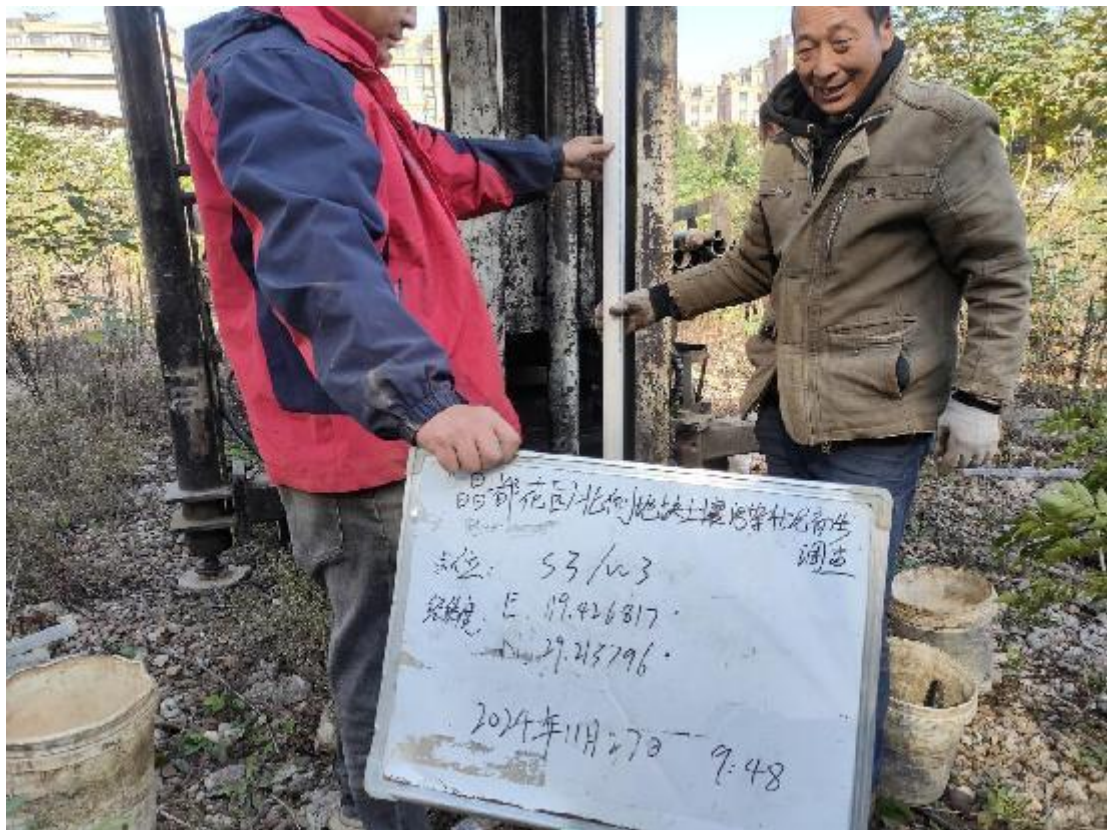 昌都花园北侧地块土壤污染状况初步
调查
点位: S3/W3
经纬度: E. 119.426817°
N. 29.213796°
2024年11月27日 9:48